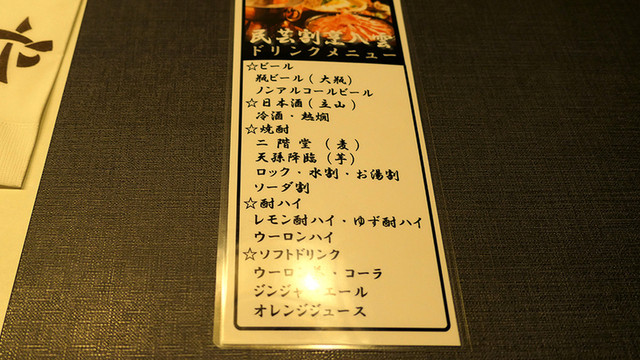 民芸割烹八雲
ドリンクメニュー
☆ビール
瓶ビール(大瓶)
ノンアルコールビール
☆日本酒(立山)
冷酒・熱燗
☆焼酎
二階堂(麦)
天孫降臨(芋)
ロック・水割・お湯割
ソーダ割
☆酎ハイ
レモン酎ハイ・ゆず酎ハイ
ウーロンハイ
☆ソフトドリンク
ウーロン ・コーラ
ジンジャーエール
オレンジジュース